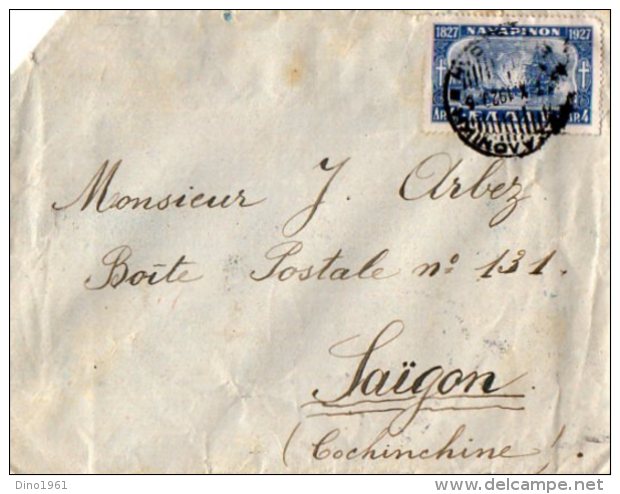 1827 ΝΑΥΑΡΙΝΟΝ 1927
ΔΡ. 4
Monsieur J. Arbez
Boîte Postale nº 131.
Saïgon
(Cochinchine).
Dino1961
www.delcampe.net